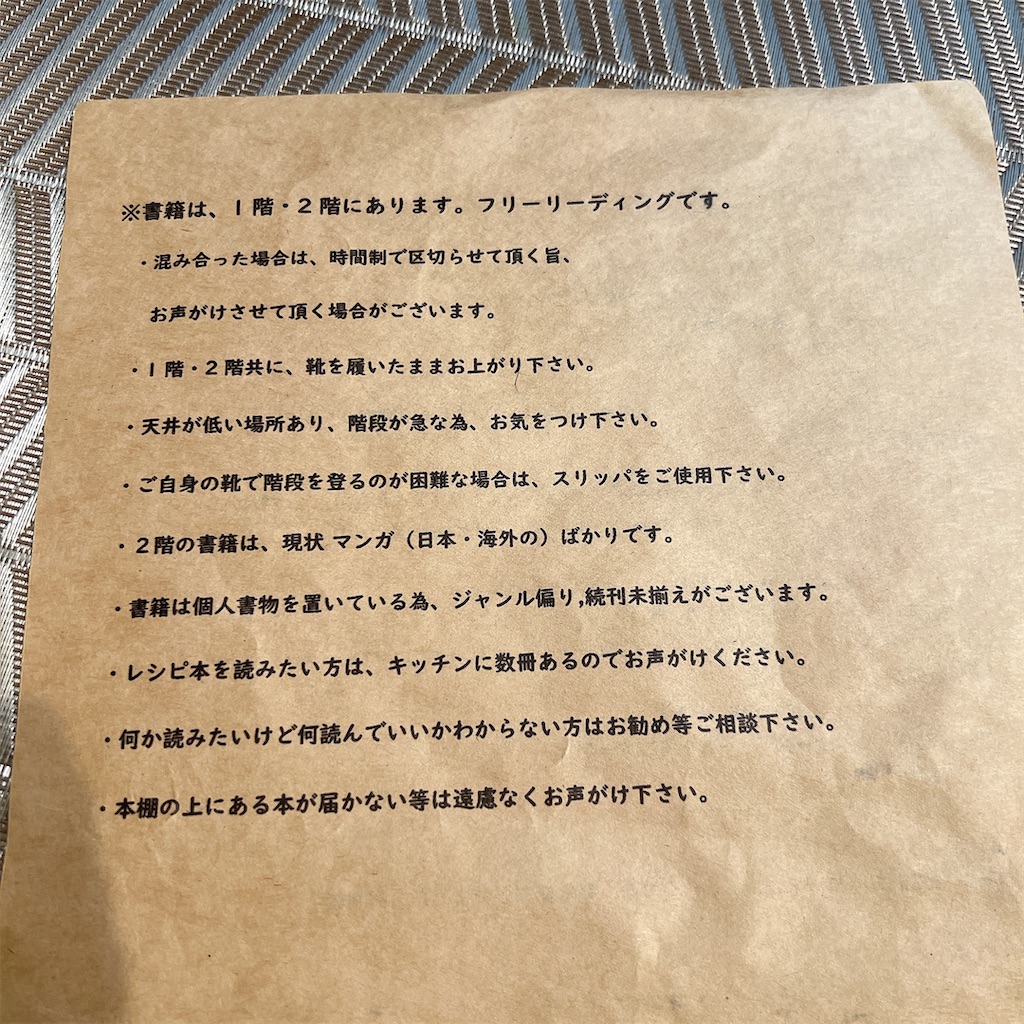 ※書籍は、1階・2階にあります。フリーリーディングです。
・混み合った場合は、時間制で区切らせて頂く旨、
お声がけさせて頂く場合がございます。
・1階・2階共に、靴を履いたままお上がり下さい。
・天井が低い場所あり、階段が急な為、お気をつけ下さい。
・ご自身の靴で階段を登るのが困難な場合は、スリッパをご使用下さい。
・2階の書籍は、現状 マンガ（日本・海外の）ばかりです。
・書籍は個人書物を置いている為、ジャンル偏り,続刊未揃えがございます。
・レシピ本を読みたい方は、キッチンに数冊あるのでお声がけください。
・何か読みたいけど何読んでいいかわからない方はお勧め等ご相談下さい。
・本棚の上にある本が届かない等は遠慮なくお声がけ下さい。